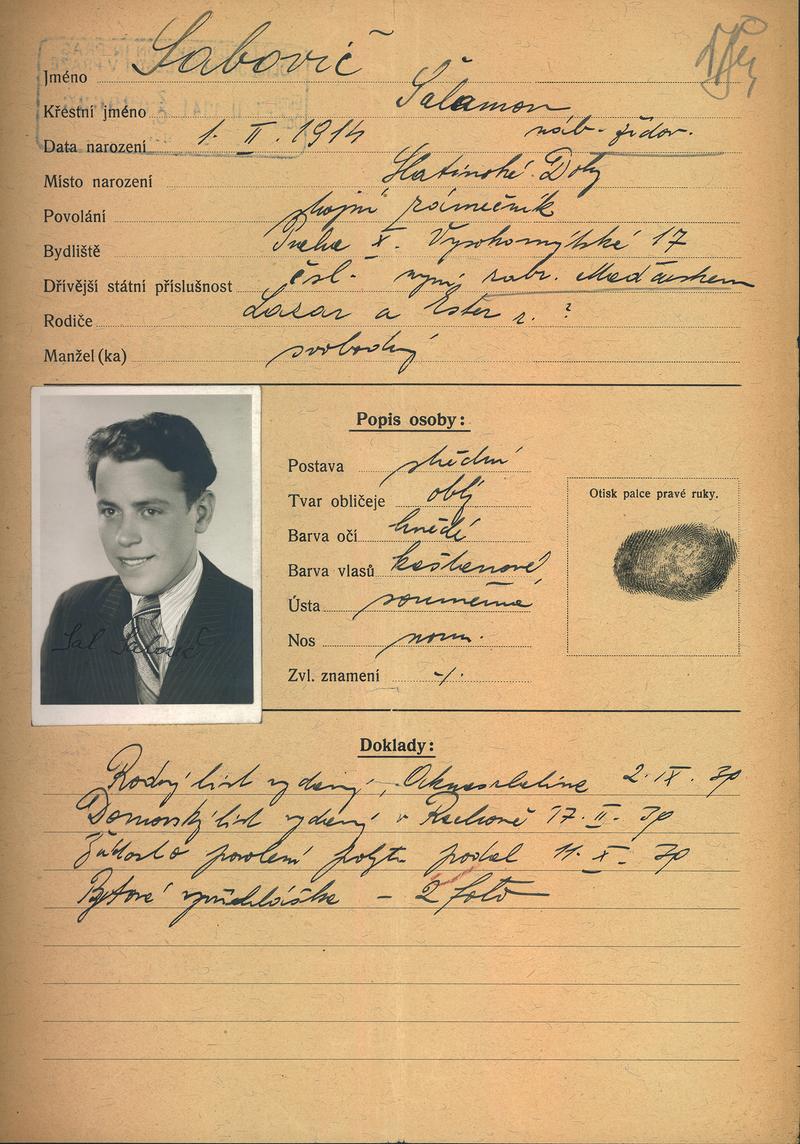 Jméno Sabovič
Křestní jméno Šalamon
Data narození 1. II. 1914 náb. židov.
Místo narození Slatinské Doly
Povolání strojní zámečník
Bydliště Praha X. Vysokomýtské 17
Dřívější státní příslušnost čsl. nyní zabr. Maďarskem
Rodiče Lazar a Ester r. ?
Manžel (ka) svobodný
Popis osoby:
Postava střední
Tvar obličeje oblý
Barva očí hnědé
Barva vlasů kaštanové
Ústa souměrná
Nos norm.
Zvl. znamení -/.
Otisk palce pravé ruky.
Sal Sabovič
Doklady:
Rodný list vydaný, 2. IX. 39
Domovský list vydaný v Rachově 17. II. 39
Žádost o povolení pobytu podal 11. X. 39
Bytová - 2 foto